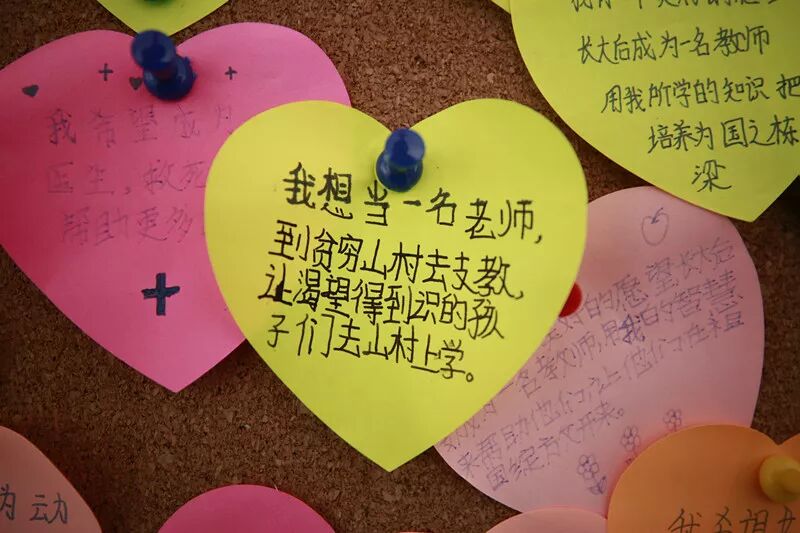 我想当一名老师,
到贫穷山村去支教,
让渴望得到识的孩
子们去山村上学。
我希望成为
医生,救死
帮助更多
长大后成为一名教师
用我所学的知识 把
培养为国之栋
梁
的愿望长大后
一名教师,用我的智慧
来帮助他们,让他们在祖
国绽放开来。
为动
我希望